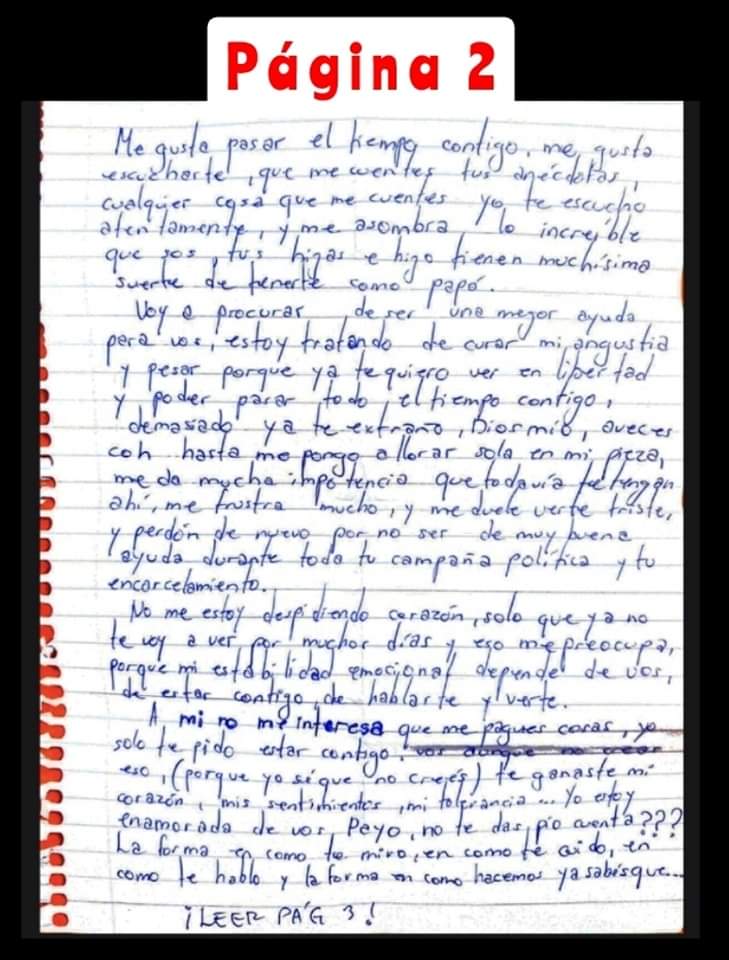 Página 2
Me gusta pasar el tiempo contigo, me gusta
escucharte, que me cuentes tus anécdotas,
cualquier cosa que me cuentes yo te escucho
atentamente, y me asombra lo increíble
que sos, tus hijas e hijo tienen muchísima
suerte de tenerte como papá.
Voy a procurar de ser una mejor ayuda
para vos, estoy tratando de curar mi angustia
y pesar porque ya te quiero ver en libertad
y poder pasar todo el tiempo contigo,
demasiado ya te extraño, Diosmío, aveces
hasta me pongo a llorar sola en mi pieza,
me da mucha impotencia que todavía te tengan
ahí, me frustra mucho, y me duele verte triste,
y perdón de nuevo por no ser de muy buena
ayuda durante toda tu campaña política y tu
encarcelamiento.
No me estoy despidiendo corazón, solo que ya no
te voy a ver por muchos días y eso me preocupa,
porque mi estabilidad emocional depende de vos,
de estar contigo, de hablarte y verte.
A mi no me interesa que me pagues cosas, yo
solo te pido estar contigo, vos aunque no creas
eso, (porque yo sé que no creés) te ganaste mi
corazón, mis sentimientos, mi tolerancia... Yo estoy
enamorada de vos, Payo, no te das pio cuenta???
La forma en como te miro, en como te cuido, en
como te hablo y la forma en como hacemos ya sabés que...
¡LEER PÁG 3!